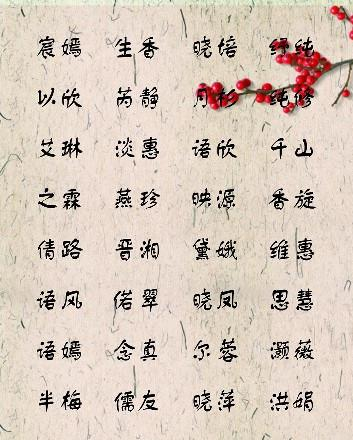 宸嫣 生香 晓培 纾纯
以欣 芮静 月杉 纯修
艾琳 淡惠 语欣 千山
之霖 燕珍 映源 香旋
倩路 晋湘 黛娥 维惠
语风 偌翠 晓凤 思慧
语嫣 念真 尔蓉 灏薇
半梅 儒友 晓萍 洪娟